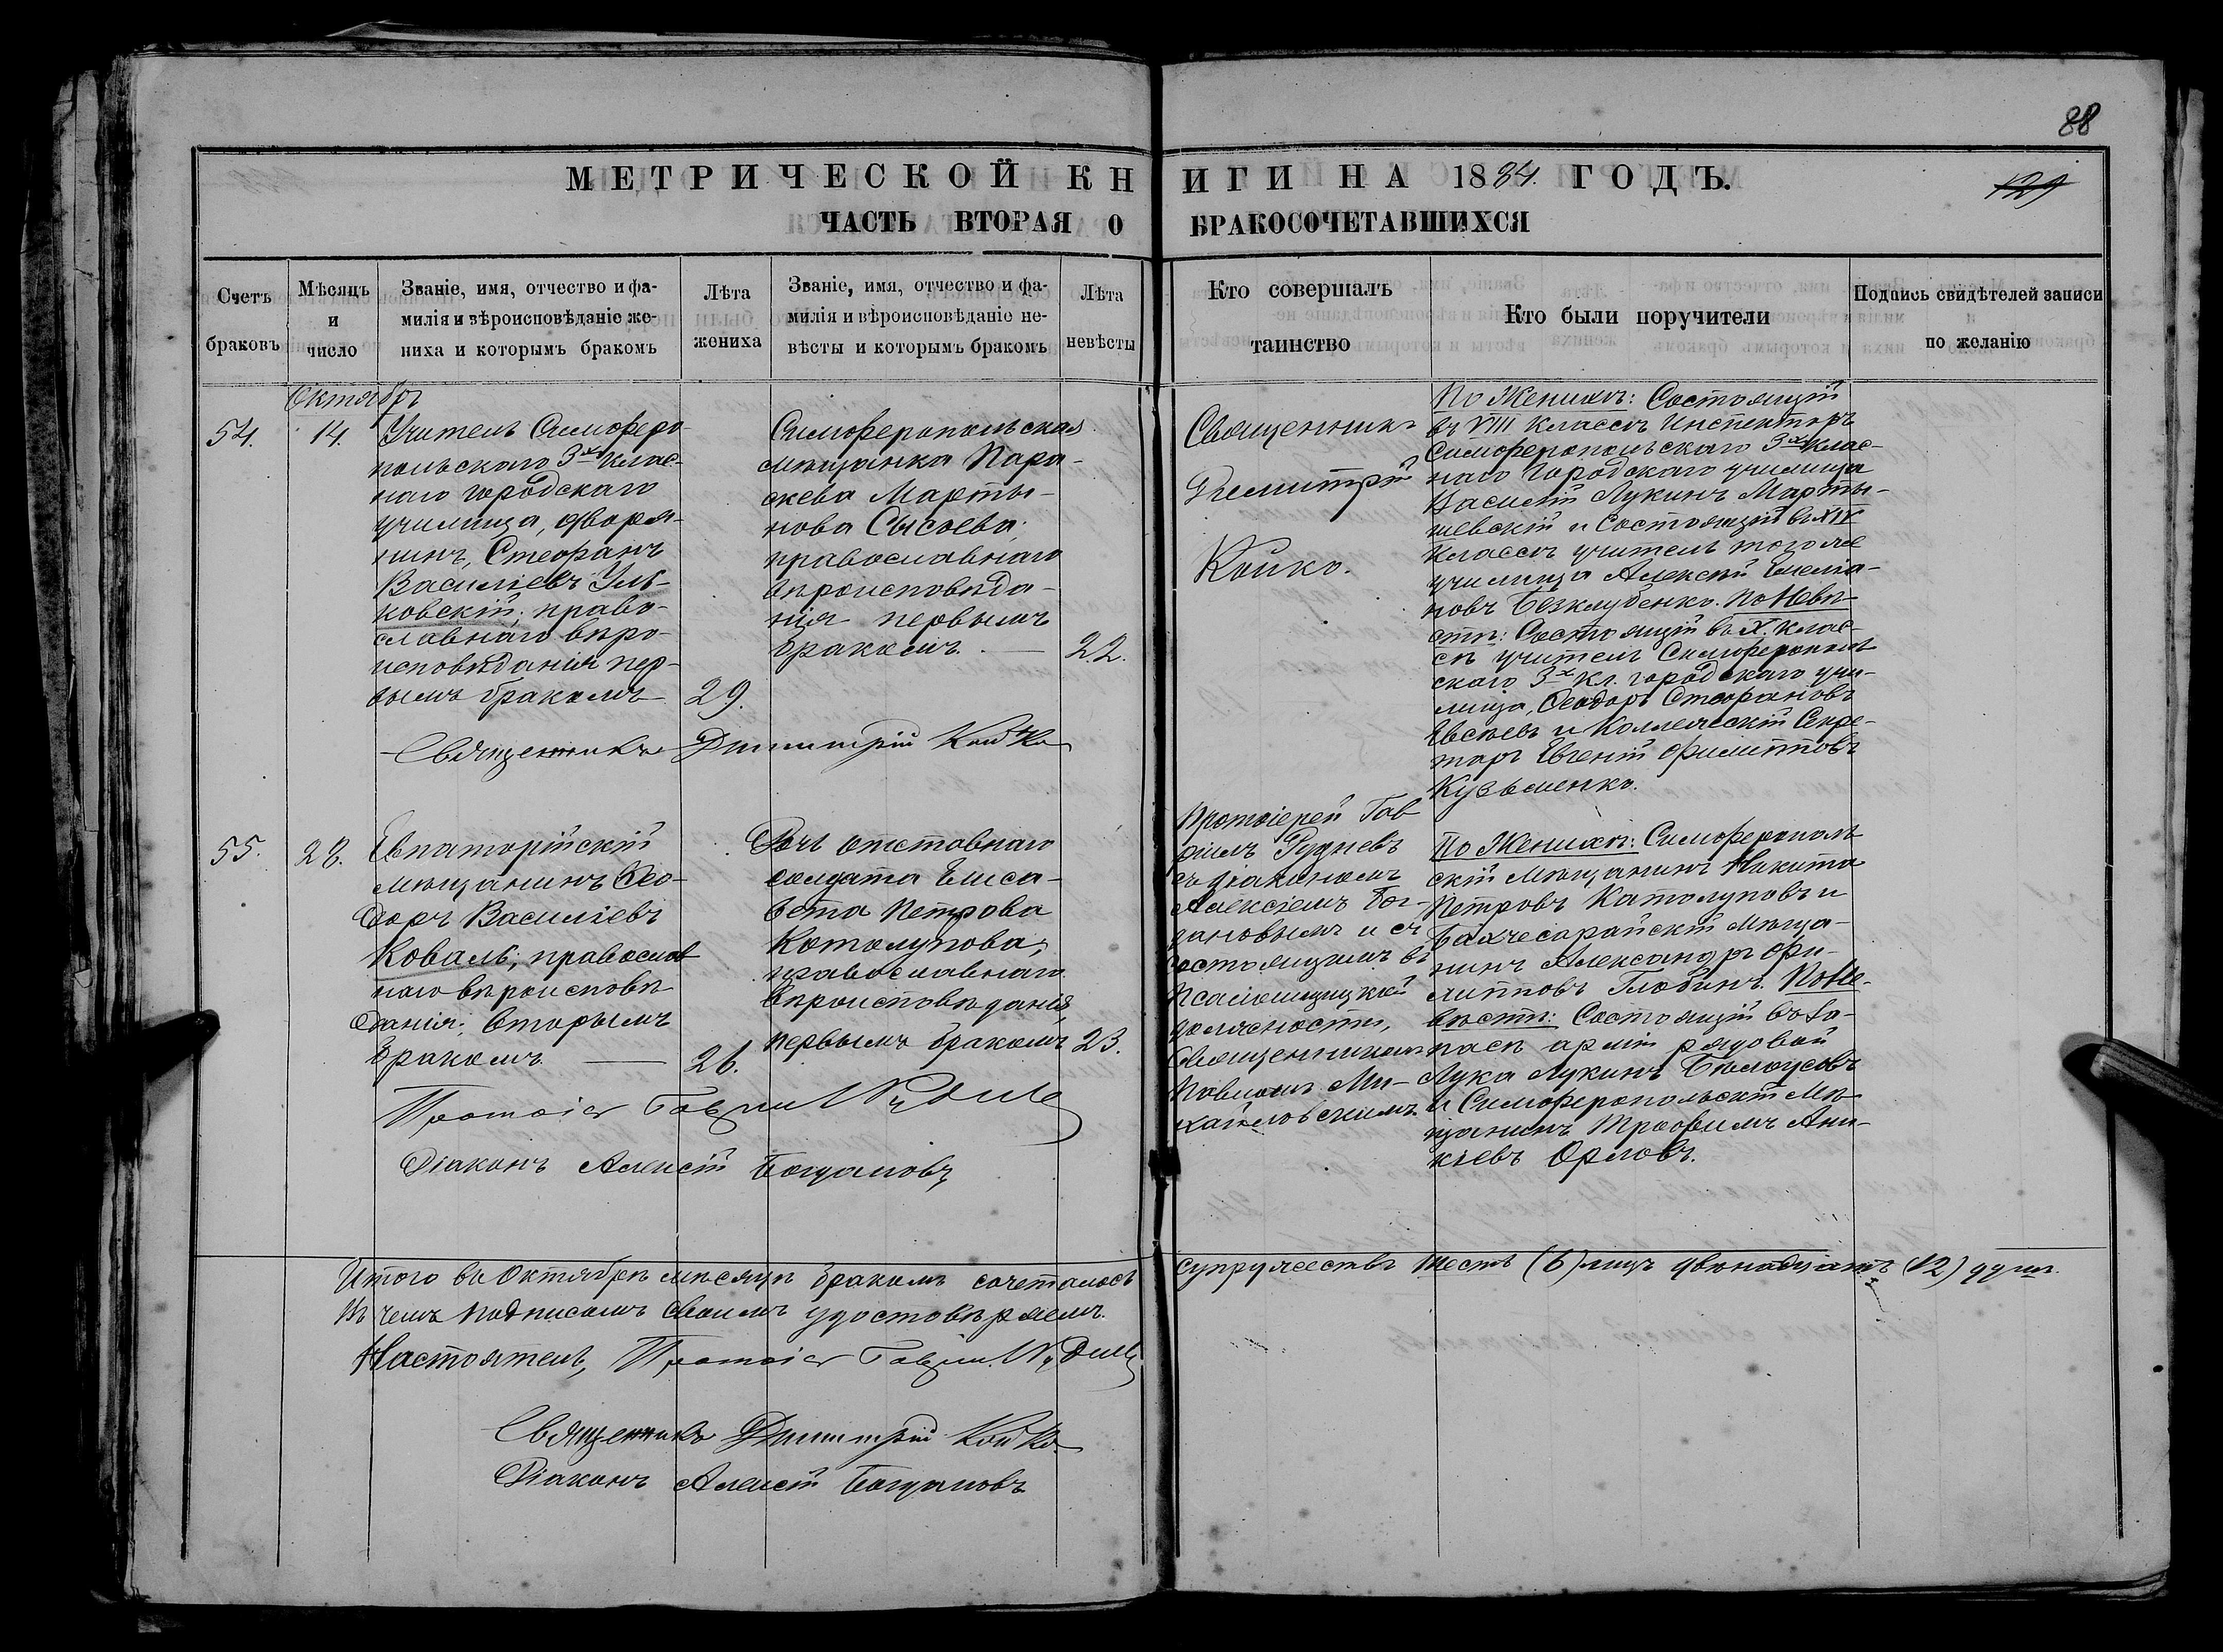 88
МЕТРИЧЕСКОЙ КНИГИ НА 1884. ГОДЪ.
129
ЧАСТЬ ВТОРАЯ О БРАКОСОЧЕТАВШИХСЯ
Счетъ браковъ
Мѣсяцъ и число
Званіе, имя, отчество и фа-
милія и вѣроисповѣданіе же-
ниха и которымъ бракомъ
Лѣта жениха
Званіе, имя, отчество и фа-
милія и вѣроисповѣданіе не-
вѣсты и которымъ бракомъ
Лѣта невѣсты
Кто совершалъ таинство
Кто были поручители
Подпись свидѣтелей записи
по желанію
Октябрь
54.
14.
Учитель Симферо-
польскаго 3х клас-
наго городскаго
училища, дворя-
нинъ, Стефанъ
Василіевъ Уль-
ковскій; право-
славнаго вѣро-
исповѣданія пер-
вымъ бракомъ
29.
Симферопольская
мѣщанка Пара-
скева Марты-
нова Сысоева;
православнаго
вѣроисповѣда-
нія первымъ
бракомъ. —
22.
Священникъ
Димитрій
Койко.
По Женихѣ: Состоящій
въ VIII классѣ Инспекторъ
Симферопольскаго 3х клас-
наго Городскаго училища
Василій Лукинъ Марты-
шевскій и Состоящій въ XIV
классѣ учитель того же
училища Алексѣй Емелія-
новъ Безклубенко. По Невѣ-
стѣ: Состоящій въ X. клас-
сѣ учитель Симферополь
скаго 3х кл. городскаго учи-
лища, Ѳеодоръ Стефановъ
Евсѣевъ и Коллежскій Секре-
тарь Евгеній Филипповъ
Кузьменко.
Священникъ Димитрій Койко
55.
28.
Евпаторійскій
мѣщанинъ Ѳео-
доръ Василіевъ
Коваль; православ
наго вѣроисповѣ-
данія; вторымъ
бракомъ —
26.
Дочь отставнаго
солдата Елиса-
вета Петрова
Котолупова;
православнаго
вѣроисповѣданія,
первымъ бракомъ
23.
Протоіерей Гав
ріилъ Рудневъ
съ діакономъ
Алексіемъ Бог-
дановымъ и съ
состоящимъ въ
псаломщицкой
должности,
Священникомъ
Павломъ Ми-
хайловскимъ
По Женихѣ: Симферополь
скій мѣщанинъ Никита
Петровъ Католуповъ и
Бахчесарайскій мѣща-
нинъ Александръ Фи-
липповъ Глобинъ. По Не-
вѣстѣ: Состоящій въ за-
пасѣ арміи рядовой
Лука Лукинъ Бѣлоусовъ
и Симферопольскій Мѣ
щанинъ Трофимъ Ани-
кіевъ Орловъ.
Протоіер Гавріил Руднев
Діаконъ Алексій Богдановъ
Итого въ Октябрѣ мѣсяцѣ бракомъ сочеталось супружествъ шесть (6) лицъ двѣнадцать (12) душъ.
въ чемъ подписомъ своимъ удостовѣряемъ.
Настоятель, Протоіер Гавріил. Руднев
Священникъ Димитрій Койко
Діаконъ Алексій Богдановъ